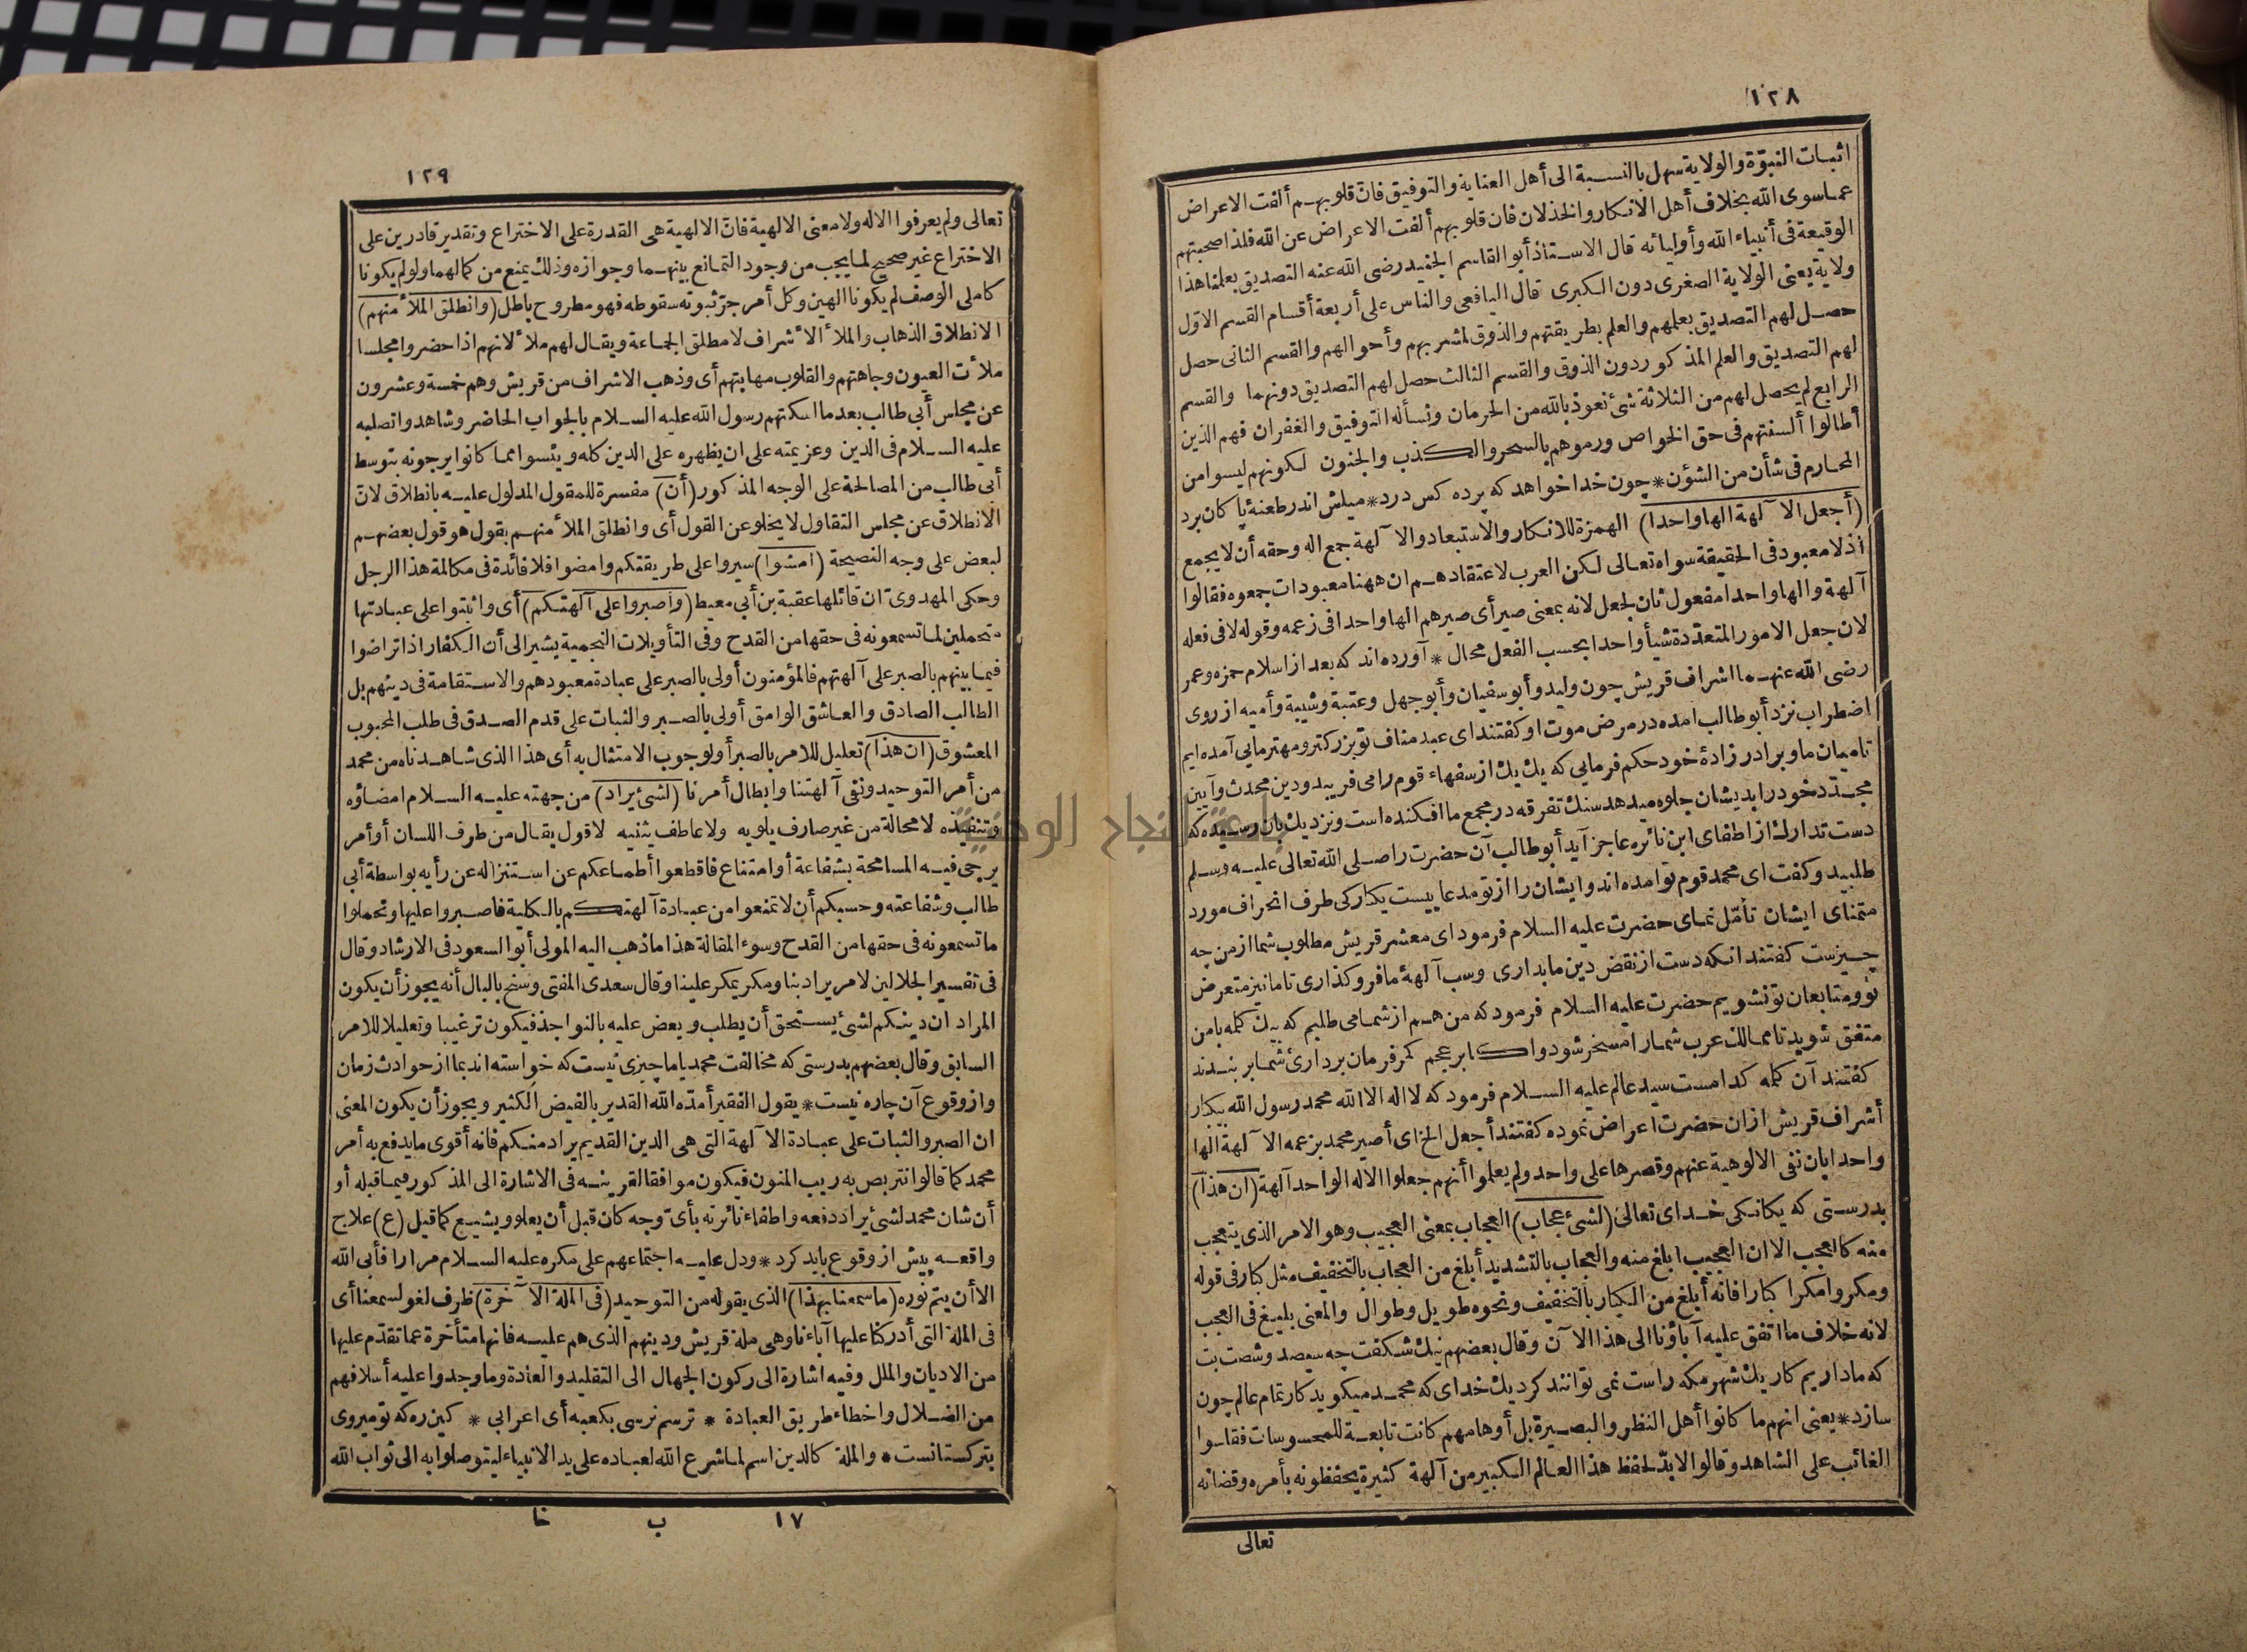 ١٢٨
اثبات النبوّة والولاية سهل بالنسبة الى أهل العناية والتوفيق فان قلوبهم ألفت الاعراض
عما سوى الله بخلاف أهل الانكار والخذلان فان قلوبهم ألفت الاعراض عن الله فلذا صحبتهم
الوقيعة فى أنبياء الله وأوليائه قال الاستاذ أبو القاسم الجنيد رضى الله عنه التصديق بعلمنا هذا
ولاية يعنى الولاية الصغرى دون الكبرى قال اليافعى والناس على أربعة أقسام القسم الاوّل
حصل لهم التصديق بعلمهم والعلم بطريقتهم والذوق لمشربهم وأحوالهم والقسم الثانى حصل
لهم التصديق والعلم المذكور دون الذوق والقسم الثالث حصل لهم التصديق دونهما والقسم
الرابع لم يحصل لهم من الثلاثة شئ نعوذ بالله من الحرمان ونسأله التوفيق والغفران فهم الذين
أطالوا ألسنتهم فى حق الخواص ورموهم بالسحر والكذب والجنون لكونهم ليسوا من
المحارم فى شأن من الشؤن * چون خدا خواهد كه پرده كس درد * ميلش اندر طعنهٔ پاكان برد
(أجعل الآلهة الها واحدا) الهمزة للانكار والاستبعاد والآلهة جمع اله وحقه أن لا يجمع
اذ لا معبود فى الحقيقة سواه تعالى لكن العرب لاعتقادهم ان ههنا معبودات جمعوه فقالوا
آلهة والها واحدا مفعول ثان لجعل لانه بمعنى صير أى صيرهم الها واحدا فى زعمه وقوله لا فى فعله
لان جعل الامور المتعدّدة شيأ واحدا بحسب الفعل محال * آورده اند كه بعد از اسلام حمزه وعمر
رضى الله عنهما اشراف قريش چون وليد وأبو سفيان وأبو جهل وعتبة وشيبة وأميه از روى
اضطراب نزد أبو طالب امده در مرض موت او كفتند اى عبد مناف تو بزركتر ومهتر مايى آمده ايم
تا ميان ما وبرادر زادهٔ خود حكم فرمايى كه يك يك از سفهاء قوم را مى فريبد ودين محدث وآيين
مجدّد خود را بديشان جلوه ميدهد سنك تفرقه در مجمع ما افكنده است ونزديك بان رسيده كه
دست تدارك از اطفاى اين نائره عاجز آيد أبو طالب آن حضرت را صلى الله تعالى عليه وسلم
طلبيد وكفت اى محمد قوم تو امده اند وايشان را از تو مدعاييست يكباركى طرف انحراف مورد
متمناى ايشان تأمّل نماى حضرت عليه السلام فرمود اى معشر قريش مطلوب شما از من چه
چيزست كفتند انكه دست از نقض دين ما بدارى وسب آلههٔ ما فرو كذارى تا ما نيز متعرض
تو ومتابعان تو نشويم حضرت عليه السلام فرمود كه من هم از شما مى طلبم كه يك كله با من
متفق شويد تا ممالك عرب شما را مسخر شود واكابر عجم كمر فرمان بردارئ شما بر بندند
كفتند آن كله كدامست سيد عالم عليه السلام فرمود كه لا اله الا الله محمد رسول الله بيكبار
أشراف قريش ازان حضرت اعراض نموده كفتند أجعل الخ اى أصير محمد بزعمه الآلهة الها
واحدا بان نفى الالوهية عنهم وقصرها على واحد ولم يعلموا أنهم جعلوا الاله الواحد آلهة (ان هذا)
بدرستى كه يكانكى خداى تعالى (لشئ عجاب) العجاب بمعنى العجيب وهو الامر الذى يتعجب
منه كالعجب الا ان العجيب ابلغ منه والعجاب بالتشديد أبلغ من العجاب بالتخفيف مثل كبار فى قوله
ومكروا مكرا كبارا فانه أبلغ من الكبار بالتخفيف ونحوه طويل وطوال والمعنى بليغ فى العجب
لانه خلاف ما اتفق عليه آباؤنا الى هذا الآن وقال بعضهم نيك شكفت چه سيصد وشصت بت
كه ما داريم كار يك شهر مكه راست نمى توانند كرد يك خداى كه محمد ميكويد كار تمام عالم چون
سازد * يعنى انهم ما كانوا أهل النظر والبصيرة بل أوهامهم كانت تابعة للمحسوسات فقاسوا
الغائب على الشاهد وقالوا لا بدّ لحفظ هذا العالم الكبير من آلهة كثيرة يحفظونه بأمره وقضائه
تعالى
١٢٩
تعالى ولم يعرفوا الاله ولا معنى الالهية فان الالهية هى القدرة على الاختراع وتقدير قادرين على
الاختراع غير صحيح لما يجب من وجود التمانع بينهما وجوازه وذلك يمنع من كمالهما ولو لم يكونا
كاملى الوصف لم يكونا الهين وكل أمر جرّ ثبوته سقوطه فهو مطروح باطل (وانطلق الملأ منهم)
الانطلاق الذهاب والملأ الأشراف لا مطلق الجماعة ويقال لهم ملأ لانهم اذا حضروا مجلسا
ملأت العيون وجاهتهم والقلوب مهابتهم أى وذهب الاشراف من قريش وهم خمسة وعشرون
عن مجلس أبى طالب بعد ما اسكتهم رسول الله عليه السلام بالجواب الحاضر وشاهدوا تصلبه
عليه السلام فى الدين وعزيمته على ان يظهره على الدين كله ويئسوا مما كانوا يرجونه بتوسط
أبى طالب من المصالحة على الوجه المذكور (أن) مفسرة للمقول المدلول عليه بانطلاق لان
الانطلاق عن مجلس التقاول لا يخلو عن القول أى وانطلق الملأ منهم بقول هو قول بعضهم
لبعض على وجه النصيحة (امشوا) سيروا على طريقتكم وامضوا فلا فائدة فى مكالمة هذا الرجل
وحكى المهدوىّ ان قائلها عقبة بن أبى معيط (واصبروا على آلهتكم) أى واثبتوا على عبادتها
متحملين لما تسمعونه فى حقها من القدح وفى التأويلات النجمية يشير الى أن الكفار اذا تراضوا
فيما بينهم بالصبر على آلهتهم فالمؤمنون أولى بالصبر على عبادة معبودهم والاستقامة فى دينهم بل
الطالب الصادق والعاشق الوامق أولى بالصبر والثبات على قدم الصدق فى طلب المحبوب
المعشوق (ان هذا) تعليل للامر بالصبر أو لوجوب الامتثال به أى هذا الذى شاهدناه من محمد
من أمر التوحيد ونفى آلهتنا وابطال أمرنا (لشئ يراد) من جهته عليه السلام امضاؤه
وتنفيذه لا محالة من غير صارف يلويه ولا عاطف يثنيه لا قول يقال من طرف اللسان أو أمر
يرجى فيه المسامحة بشفاعة أو امتناع فاقطعوا أطماعكم عن استنزاله عن رأيه بواسطة أبى
طالب وشفاعته وحسبكم أن لا تمنعوا من عبادة آلهتكم بالكلية فاصبروا عليها وتحملوا
ما تسمعونه فى حقها من القدح وسوء المقالة هذا ما ذهب اليه المولى أبو السعود فى الارشاد وقال
فى تفسير الجلالين لامر يراد بنا ومكر يمكر علينا وقال سعدى المفتى وسنح بالبال أنه يجوز أن يكون
المراد ان دينكم لشئ يستحق أن يطلب ويعض عليه بالنواجذ فيكون ترغيبا وتعليلا للامر
السابق وقال بعضهم بدرستى كه مخالفت محمد با ما چيزى نيست كه خواسته اند بما از حوادث زمان
واز وقوع آن چاره نيست * يقول الفقير أمدّه الله القدير بالفيض الكثير ويجوز أن يكون المعنى
ان الصبر والثبات على عبادة الآلهة التى هى الدين القديم يراد منكم فانه أقوى ما يدفع به أمر
محمد كما قالوا نتربص به ريب المنون فيكون موافقا لقرينه فى الاشارة الى المذكور فيما قبله أو
أن شان محمد لشئ يراد دفعه واطفاء نائرته بأىّ وجه كان قبل أن يعلو ويشيع كما قيل (ع) علاج
واقعه پيش از وقوع بايد كرد * ودل عليه اجتماعهم على مكره عليه السلام مرارا فأبى الله
الا أن يتم نوره (ما سمعنا بهذا) الذى يقوله من التوحيد (فى الملة الآخرة) ظرف لغو لسمعنا أى
فى الملة التى أدركنا عليها آباءنا وهى ملة قريش ودينهم الذى هم عليه فانها متأخرة عما تقدّم عليها
من الاديان والملل وفيه اشارة الى ركون الجهال الى التقليد والعادة وما وجدوا عليه أسلافهم
من الضلال واخطاء طريق العبادة * ترسم نرسى بكعبه أى اعرابى * كين ره كه تو ميروى
بتركستانست * والملة كالدين اسم لما شرع الله لعباده على يد الانبياء ليتوصلوا به الى ثواب الله
١٧ ب خا
جامعة النجاح الوطنية